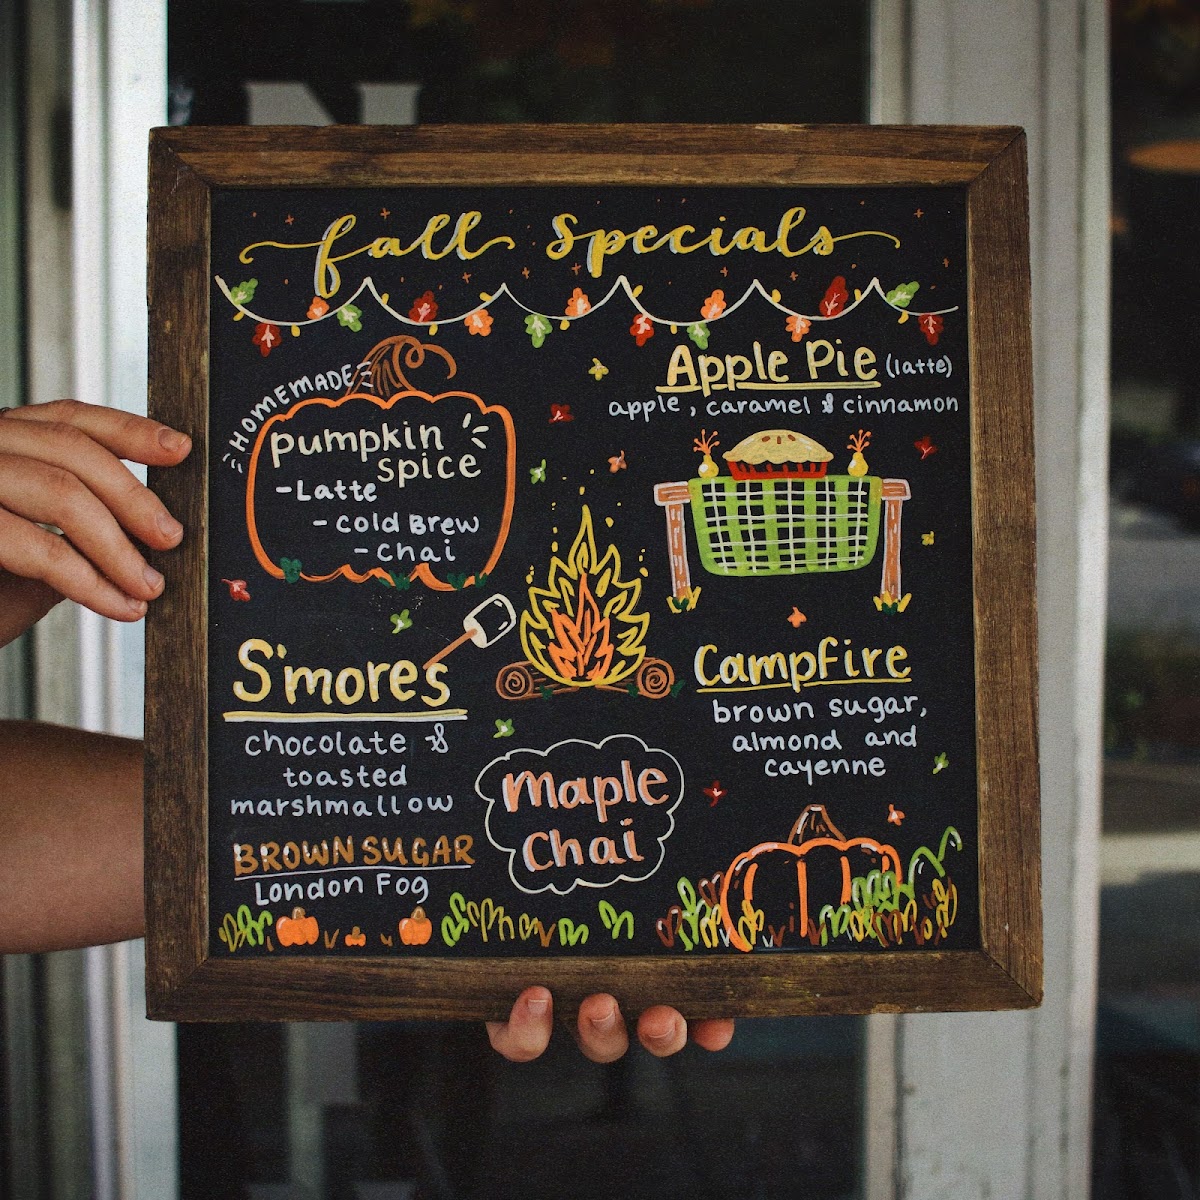 fall Specials
HOMEMADE
pumpkin
spice
-Latte
-Cold Brew
-Chai
Apple Pie (latte)
apple, caramel & cinnamon
S'mores
chocolate &
toasted
marshmallow
Campfire
brown sugar,
almond and
cayenne
Maple
Chai
BROWN SUGAR
London Fog